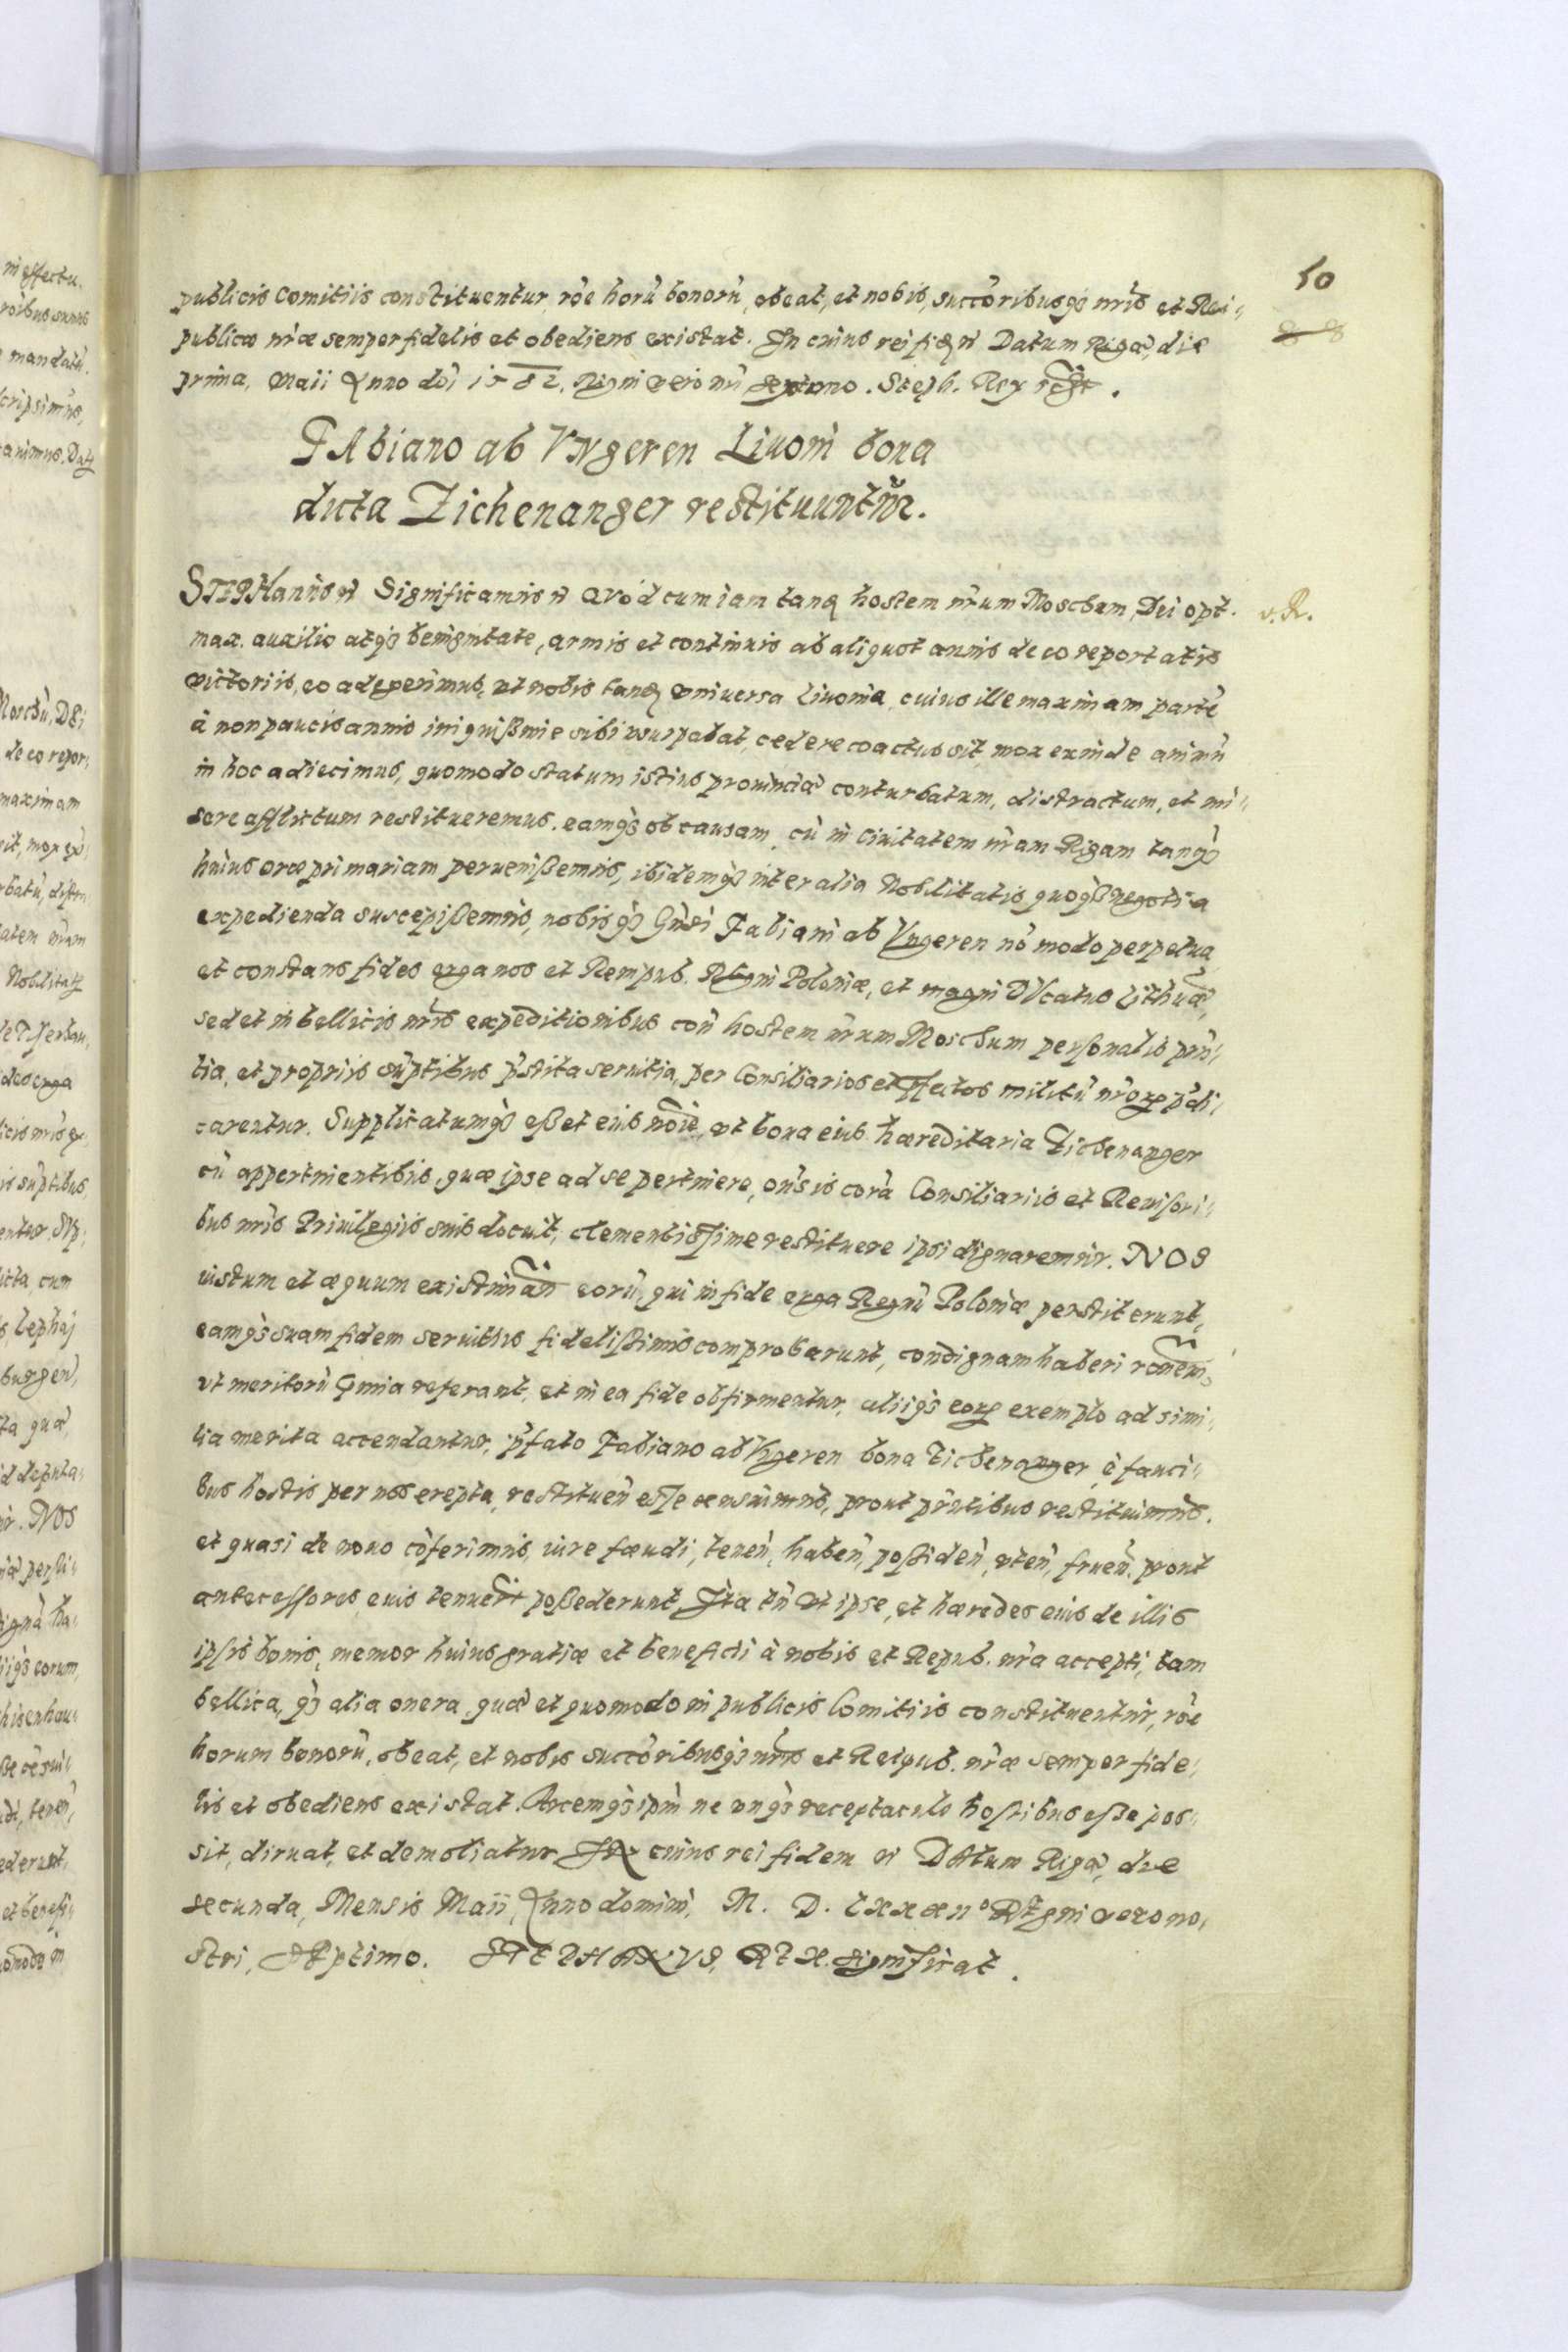 50
8 8
publicis comitiis constituentur, rõe horũ bonorũ, obeat, et nobis, succõribusq3 nr̃is et Rei-
publicæ nr̃æ semper fidelis et obediens existat. In cuius rei fid. Datum Rigæ, die
prima, Maii Anno dñi 1582. Regni vero nr̃i septimo. Steph. Rex sst.
FAbiano ab VNgeren Liuoni bona
dicta Zichenanger restituuntur.
v. R.
STEPHanus Significamus Quod cum iam tand. hostem nr̃um Moschum, Dei opt.
max. auxilio atq3 benignitate, armis et continuis ab aliquot annis de eo reportatis
victoriis, eo adegerimus, vt nobis tand. vniuersa Liuonia, cuius ille maximam partẽ
à non paucis annis iniquißime sibi vsurpabat, cedere coactus sit, mox exinde animũ
in hoc adiecimus, quomodo statum istius prouinciæ conturbatum, distractum, et mi-
sere afflictum restitueremus. eamq3 ob causam, cũ in Ciuitatem nr̃am Rigam tanq3
huius oræ primariam peruenißemus, ibidemq3 inter alia Nobilitatis quoq3 negotia
expedienda suscepißemus, nobisq3 Gñsi Fabiani ab Vngeren nõ modo perpetua
et constans fides erga nos et Rempub. Regni Poloniæ, et magni DVcatus Lithuã,
sed et in bellicis nr̃is expeditionibus coñ hostem nr̃um Moschum personalis prñ-
tia, et propriis sũptibus p̃stita seruitia, per Consiliarios et P̃fectos militũ nr̃or. p̃di-
carentur. Supplicatumq3 eßet eius noĩe, vt bona eius hæreditaria Zichenanger
cũ appertinentibus, quæ ipse ad se pertinere, oñsis corã Consiliariis et Reuisori-
bus nr̃is Priuilegiis suis docuit, clementissime restituere ipsi dignaremur. NOS
iustum et æquum existimañ eorũ, qui in fide erga Regnũ Poloniæ perstiterunt,
eamq3 suam fidem seruitiis fidelißimis comprobarunt, condignam haberi rõnem,
vt meritorũ p̃mia referant, et in ea fide obfirmentur, aliiq3 eor. exemplo ad simi-
lia merita accendantur, p̃fato Fabiano ab Vngeren bona Zichenanger, è fauci-
bus hostis per nos erepta, restitueñ esse censuimus, prout prñtibus restituimus.
et quasi de nouo cõferimus, iure fœudi, teneñ, habeñ, poßideñ, vteñ, frueñ. prout
antecessores eius tenuert̃ poßederunt, Ita tñ vt ipse, et hæredes eius de illis
ipsis bonis, memor huius gratiæ et beneficii à nobis et Repub. nr̃a accepti, tam
bellica, q3 alia onera, quæ et quomodo in publicis Comitiis constituentur, rõe
horum bonorũ, obeat, et nobis succõribusq3 nr̃is et Reipub. nr̃æ semper fide-
lis et obediens existat. Arcemq3 ipm̃ ne vnq3 receptaculo hostibus eße pos-
sit, diruat, et demoliatur. IN cuius rei fidem DAtum Rigæ, die
secunda, Mensis Maii, Anno domini, M. D. LXXXII° REgni vero no-
stri, SEptimo. STEPHANVS, REX. significat.